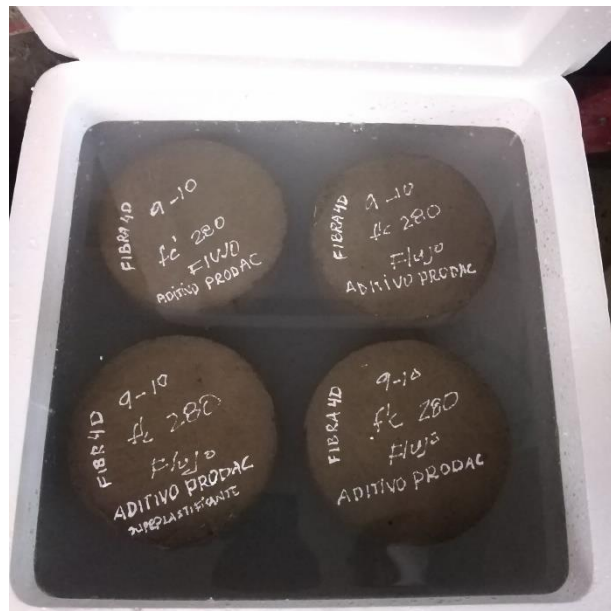 FIBRA 4D
9-10
f'c 280
FLUJO
ADITIVO PRODAC
FIBRA 4D
9-10
f'c 280
Flujo
ADITIVO PRODAC
FIBR 4D
9-10
f'c 280
Flujo
ADITIVO PRODAC
SUPERPLASTIFICANTE
FIBRA 4D
9-10
f'c 280
Flujo
ADITIVO PRODAC